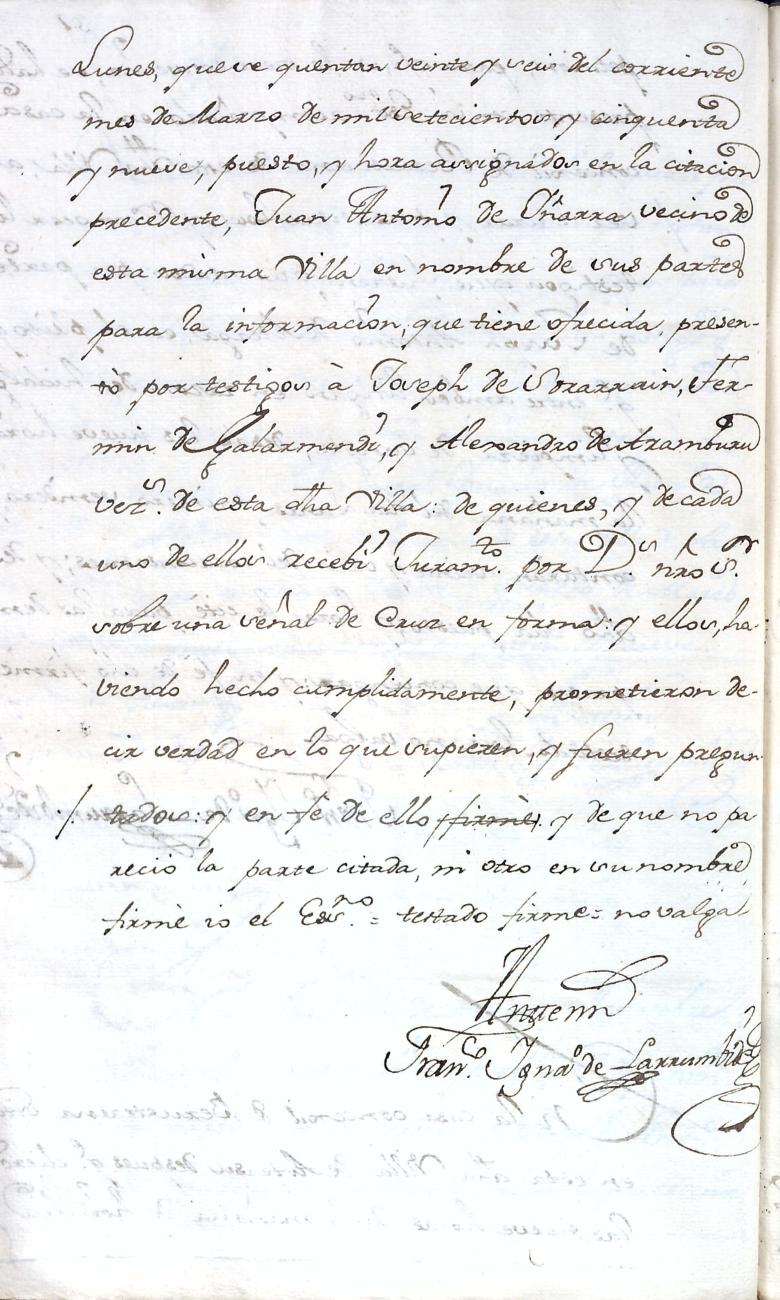 Lunes, que se quentan veinte y seis del corriente
mes de Marzo de mil setecientos y cinquenta
y nueve, puesto, y hora assignados en la citacion
precedente, Juan Antonio de Oñarra vecino de
esta misma Villa en nombre de sus partes
para la informacion, que tiene ofrecida, presen-
tò por testigos à Joseph de Sorarrain, Fer-
min de Galarmendi, y Alexandro de Aramburu
vezs. de esta dha Villa: de quienes, y de cada
uno de ellos recebi Juramto. por Ds. nro Sr.
sobre una señal de Cruz en forma: y ellos, ha-
viendo hecho cumplidamente, prometieron de-
cir verdad en lo que supieren, y fueren pregun-
/. tados: y en fè de ello firmè y de que no pa-
reciò la parte citada, ni otro en su nombre,
firmè io el Essno. = testado firmè = no valga
Antemi
Franco. Ignao de Larrumbide